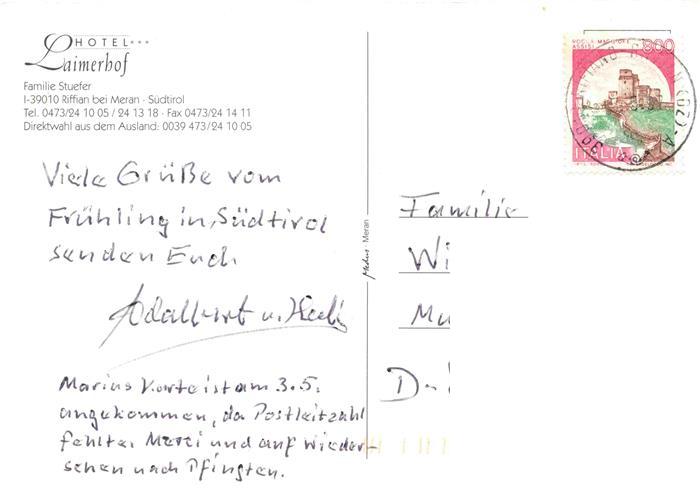 HOTEL***
Laimerhof
Familie Stuefer
I-39010 Riffian bei Meran · Südtirol
Tel. 0473/24 10 05 / 24 13 18 · Fax 0473/24 14 11
Direktwahl aus dem Ausland: 0039 473/24 10 05
ROCCA MAGGIORE
ASSISI
800
ITALIA
Viele Grüße vom
Frühling in Südtirol
senden Euch
Adalbert u.
Marius Karte ist am 3.5.
angekommen, da Postleitzahl
fehlte. Merci und auf Wieder-
sehen nach Pfingsten.
Meran
Familie
Wi
Mu
D-